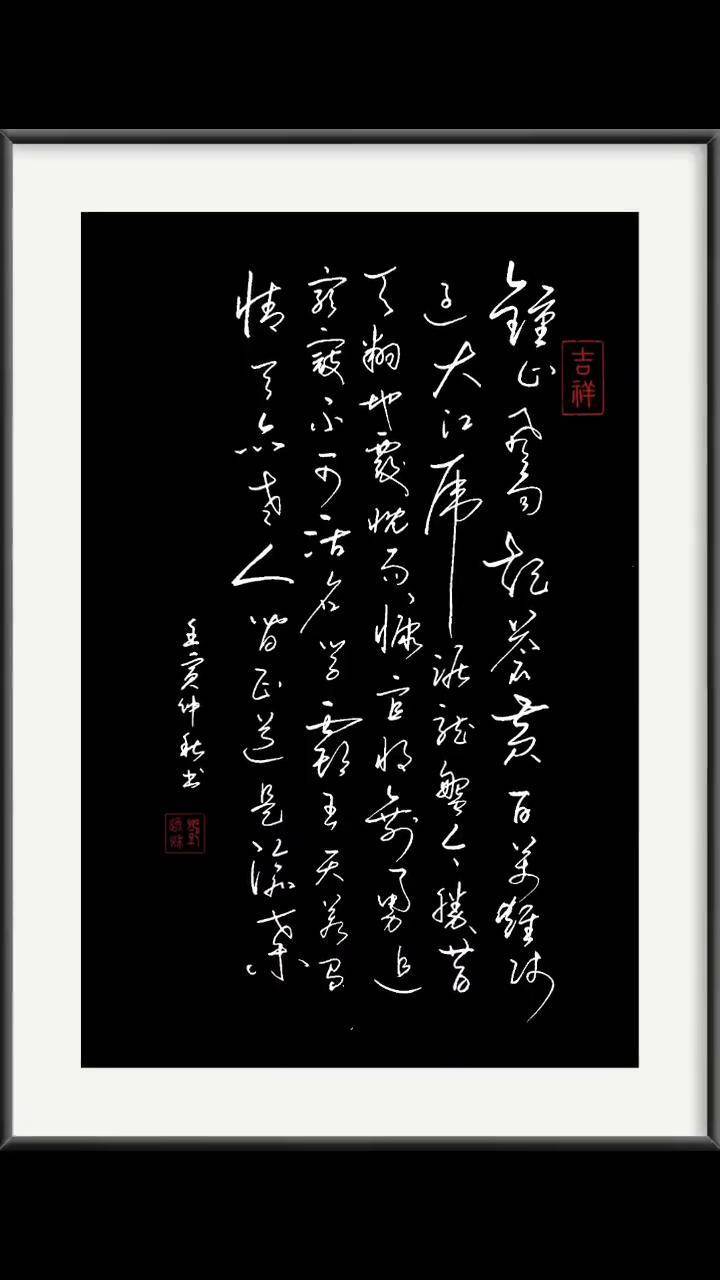 吉祥
鐘山风雨起苍黄百万雄师
过大江虎踞龙盘今胜昔
天翻地覆慨而慷宜将剩勇追
穷寇不可沽名学霸王天若有
情天亦老人间正道是沧桑
壬寅仲秋书